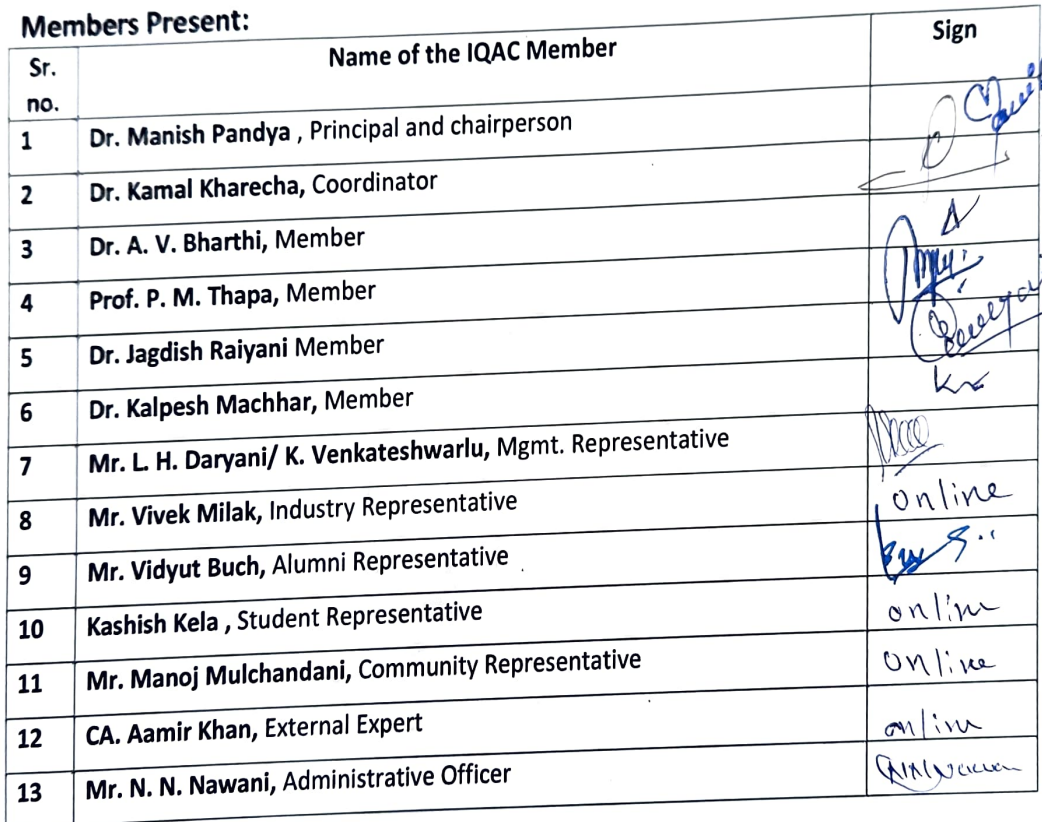 Members Present:
Sr. no. Name of the IQAC Member Sign
1 Dr. Manish Pandya , Principal and chairperson
2 Dr. Kamal Kharecha, Coordinator
3 Dr. A. V. Bharthi, Member
4 Prof. P. M. Thapa, Member
5 Dr. Jagdish Raiyani Member
6 Dr. Kalpesh Machhar, Member
7 Mr. L. H. Daryani/ K. Venkateshwarlu, Mgmt. Representative
8 Mr. Vivek Milak, Industry Representative online
9 Mr. Vidyut Buch, Alumni Representative
10 Kashish Kela , Student Representative online
11 Mr. Manoj Mulchandani, Community Representative online
12 CA. Aamir Khan, External Expert online
13 Mr. N. N. Nawani, Administrative Officer